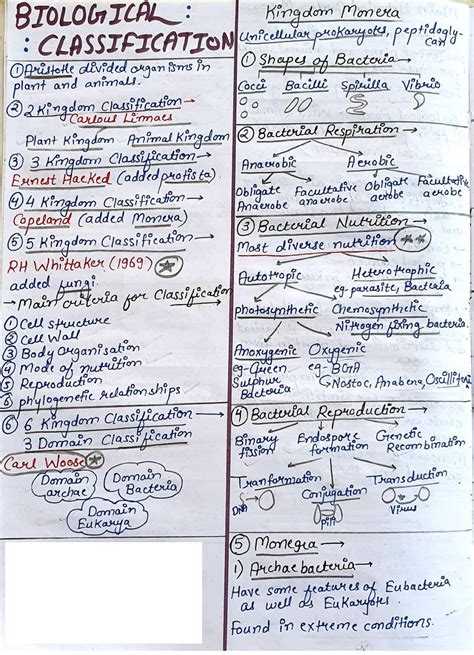 BIOLOGICAL :
: CLASSIFICATION
① Aristotle divided organisms in
plant and animals.
② 2 Kingdom Classification →
Carlous Linnaes
Plant Kingdom Animal Kingdom
③ 3 Kingdom Classification →
Ernest Hacked (added protista).
④ 4 Kingdom Classification →
Copeland (added Monera)
⑤ 5 Kingdom Classification →
RH Whittaker (1969)
added fungi.
→ Main criteria for Classification
① Cell structure
② Cell Wall
③ Body Organisation
④ Mode of nutrition
⑤ Reproduction
⑥ phylogenetic relationships.
⑥ 6 Kingdom Classification →
3 Domain Classification
Carl Woose
Domain archae
Domain Bacteria
Domain Eukarya
Kingdom Monera
Unicellular prokaryotes, peptidogly-
can
① Shapes of Bacteria →
Cocci Bacilli Spirilla Vibrio
② Bacterial Respiration →
Anaerobic Aerobic
Obligate Facultative Obligate Facultative
Anaerobe anaerobe aerobe aerobe
③ Bacterial Nutrition →
Most diverse nutrition
Autotropic Heterotrophic
eg- parasite, Bacteria
photosynthetic Chemosynthetic
Nitrogen fixing bacteria
Anoxygenic Oxygenic
eg- Green eg- BGA
Sulphur Nostoc, Anabena, Oscillitoria
Bacteria
④ Bacterial Reproduction →
Binary Endospore Genetic
fission formation Recombination
Tranformation Conjugation Transduction
DNA pili Virus
⑤ Monegra →
1) Archaebacteria →
Have some features of Eubacteria
as well as Eukaryotes.
Found in extreme conditions.